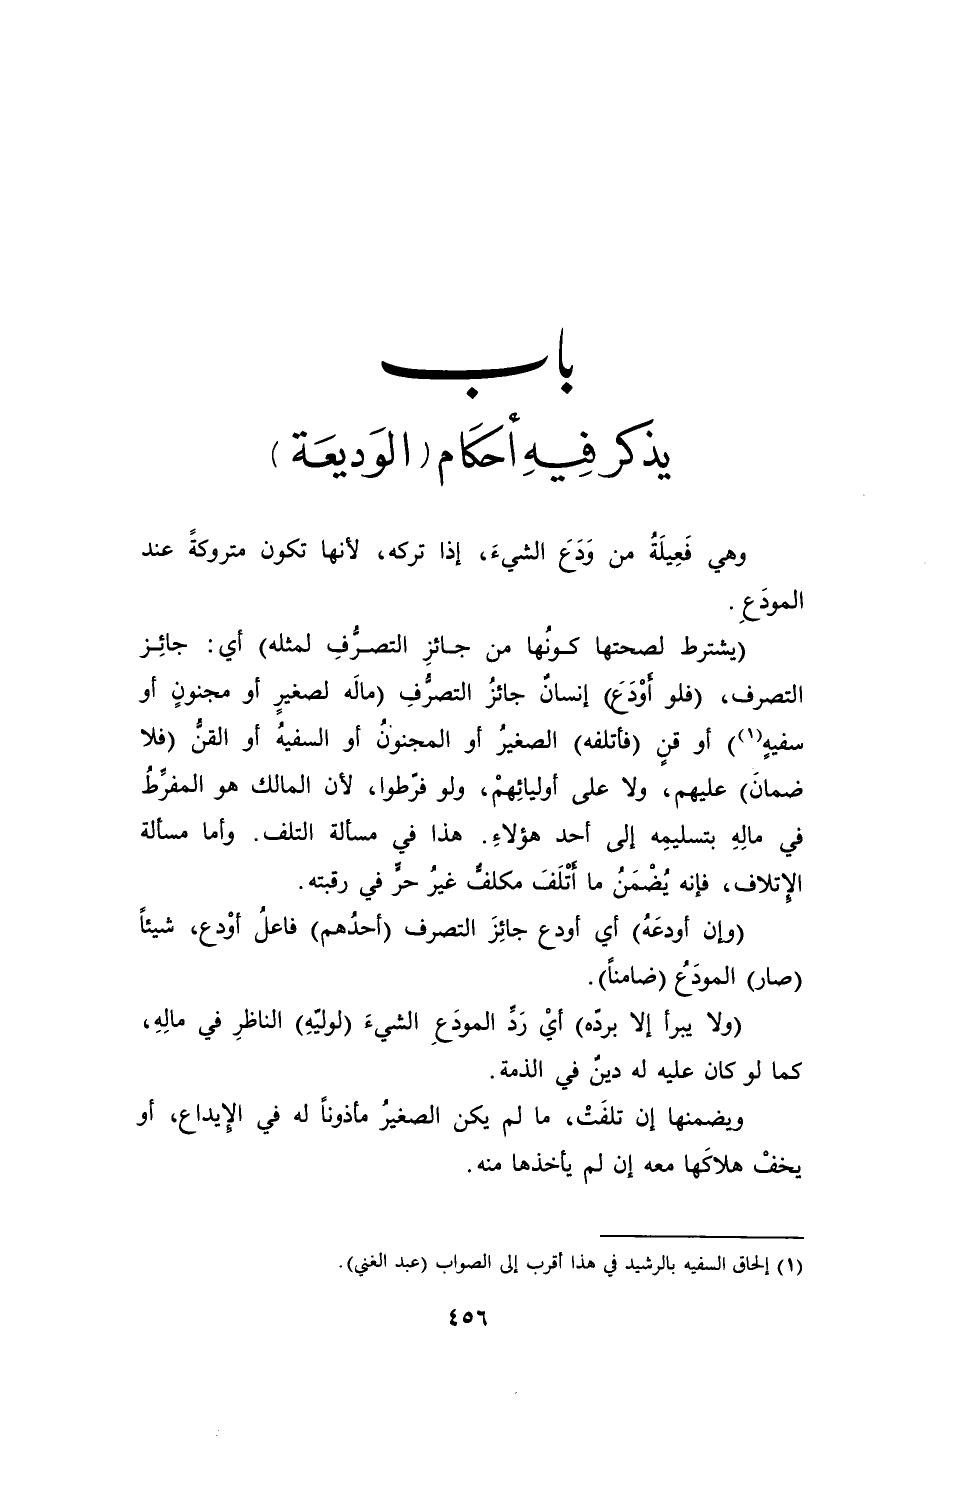 باب
يذكر فيهِ أحكَام (الوَديعَة)
وهي فَعِيلَةُ من وَدَعَ الشيءَ، إذا تركه، لأنها تكون متروكةً عند
المودَعِ.
(يشترط لصحتها كونُها من جائزِ التصرُّفِ لمثله) أي: جائِز
التصرف، (فلو أَوْدَعَ) إنسانٌ جائزُ التصرُّفِ (مالَه لصغيرٍ أو مجنونٍ أو
سفيهٍ(١)) أو قنٍ (فأتلفه) الصغيرُ أو المجنونُ أو السفيهُ أو القنُّ (فلا
ضمانَ) عليهم، ولا على أوليائِهمْ، ولو فرّطوا، لأن المالك هو المفرِّطُ
في مالِهِ بتسليمِه إلى أحد هؤلاءِ. هذا في مسألة التلف. وأما مسألة
الإتلاف، فإنه يُضْمَنُ ما أَتْلَفَ مكلفٌ غيرُ حرٍّ في رقبته.
(وإن أودعَهُ) أي أودع جائِزَ التصرف (أحدُهم) فاعلُ أوْدع، شيئاً
(صار) المودَعُ (ضامناً).
(ولا يبرأ إلا بردّه) أيْ رَدِّ المودَعِ الشيءَ (لوليّهِ) الناظرِ في مالِهِ،
كما لو كان عليه له دينٌ في الذمة.
ويضمنها إن تلفَتْ، ما لم يكن الصغيرُ مأذوناً له في الإيداع، أو
يخفْ هلاكَها معه إن لم يأخذها منه.
(١) إلحاق السفيه بالرشيد في هذا أقرب إلى الصواب (عبد الغني).
٤٥٦